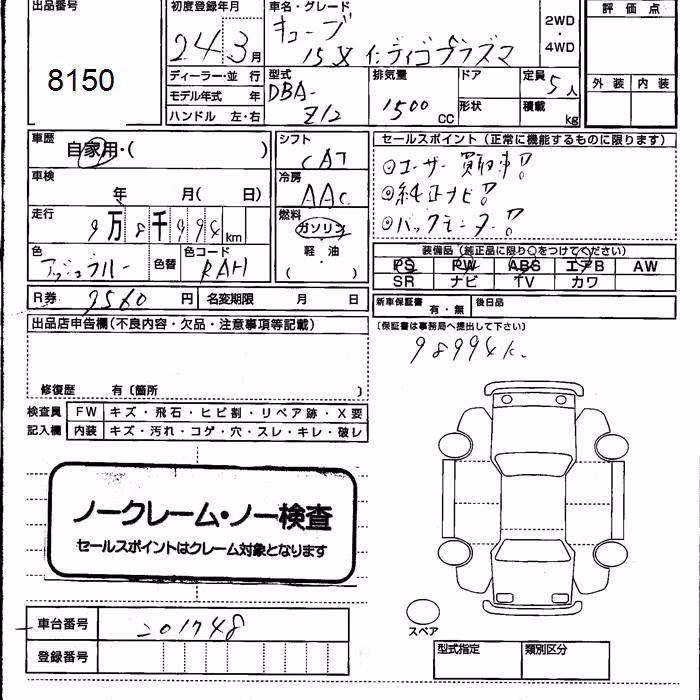 出品番号
8150
初度登録年月
24 3月
車名・グレード
キューブ
15X インディゴプラズマ
2WD
・
4WD
評価点
外装 内装
ディーラー・並 行
モデル年式 年
ハンドル 左・右
型式
DBA-
Z12
排気量
1500 cc
ドア
形状
定員 5人
積載 kg
車歴
自家用・( )
車検
年 月( 日)
走行
9万8千994 km
色
アッシュブルー
色替
色コード
RAH
シフト
CAT
冷房
AAC
燃料
ガソリン
軽・油
( ・ )
セールスポイント(正常に機能するものに限ります)
◎ユーザー買取車!!
◎純正ナビ!!
◎バックモニター!!
装備品(純正品に限り○をつけてください)
PS PW ABS エアB AW
SR ナビ TV カワ
R券 9560 円 名変期限 月 日
新車保証書 有・無 後日品
(保証書は事務局へ提出して下さい)
98994k.
出品店申告欄(不良内容・欠品・注意事項等記載)
修復歴 有〔箇所 〕
検査員 FW キズ・飛石・ヒビ割・リペア跡・X要
記入欄 内装 キズ・汚れ・コゲ・穴・スレ・キレ・破レ
ノークレーム・ノー検査
セールスポイントはクレーム対象となります
車台番号 201748
登録番号
スペア
型式指定 類別区分